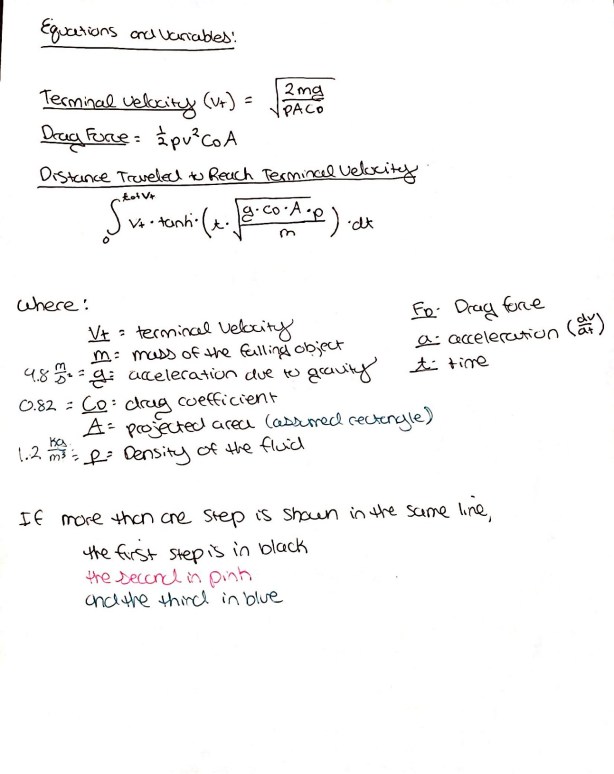 Equations and Variables:
Terminal Velocity (Vt) = √(2mg / ρACD)
Drag Force = ½ρv²CDA
Distance Traveled to Reach Terminal Velocity
∫₀^(t at Vt) Vt · tanh · (t · √(g·CD·A·ρ / m)) · dt
Where:
Vt = terminal velocity
m = mass of the falling object
9.8 m/s² = g = acceleration due to gravity
0.82 = CD: drag coefficient
A = projected area (assumed rectangle)
1.2 kg/m³ = ρ = Density of the fluid
FD: Drag force
a: acceleration (dv/dt)
t: time
If more than one step is shown in the same line,
the first step is in black
the second in pink
and the third in blue